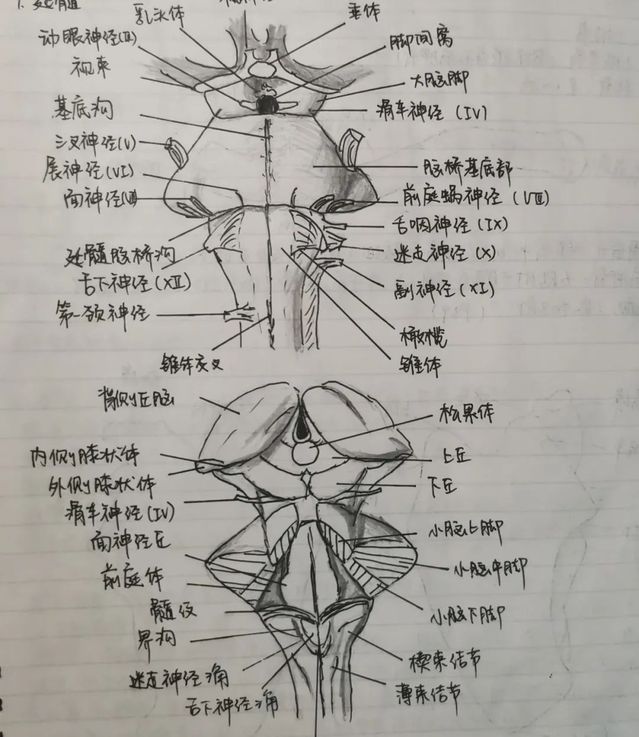 1. 延髓
乳头体
垂体
动眼神经(III)
脚间窝
视束
大脑脚
基底沟
滑车神经(IV)
三叉神经(V)
展神经(VI)
脑桥基底部
面神经(VII)
前庭蜗神经(VIII)
舌咽神经(IX)
延髓脑桥沟
迷走神经(X)
舌下神经(XII)
副神经(XI)
第一颈神经
橄榄
锥体交叉
锥体
背侧丘脑
松果体
内侧膝状体
上丘
外侧膝状体
下丘
滑车神经(IV)
面神经丘
小脑上脚
前庭体
小脑中脚
髓纹
小脑下脚
界沟
迷走神经三角
楔束结节
舌下神经三角
薄束结节